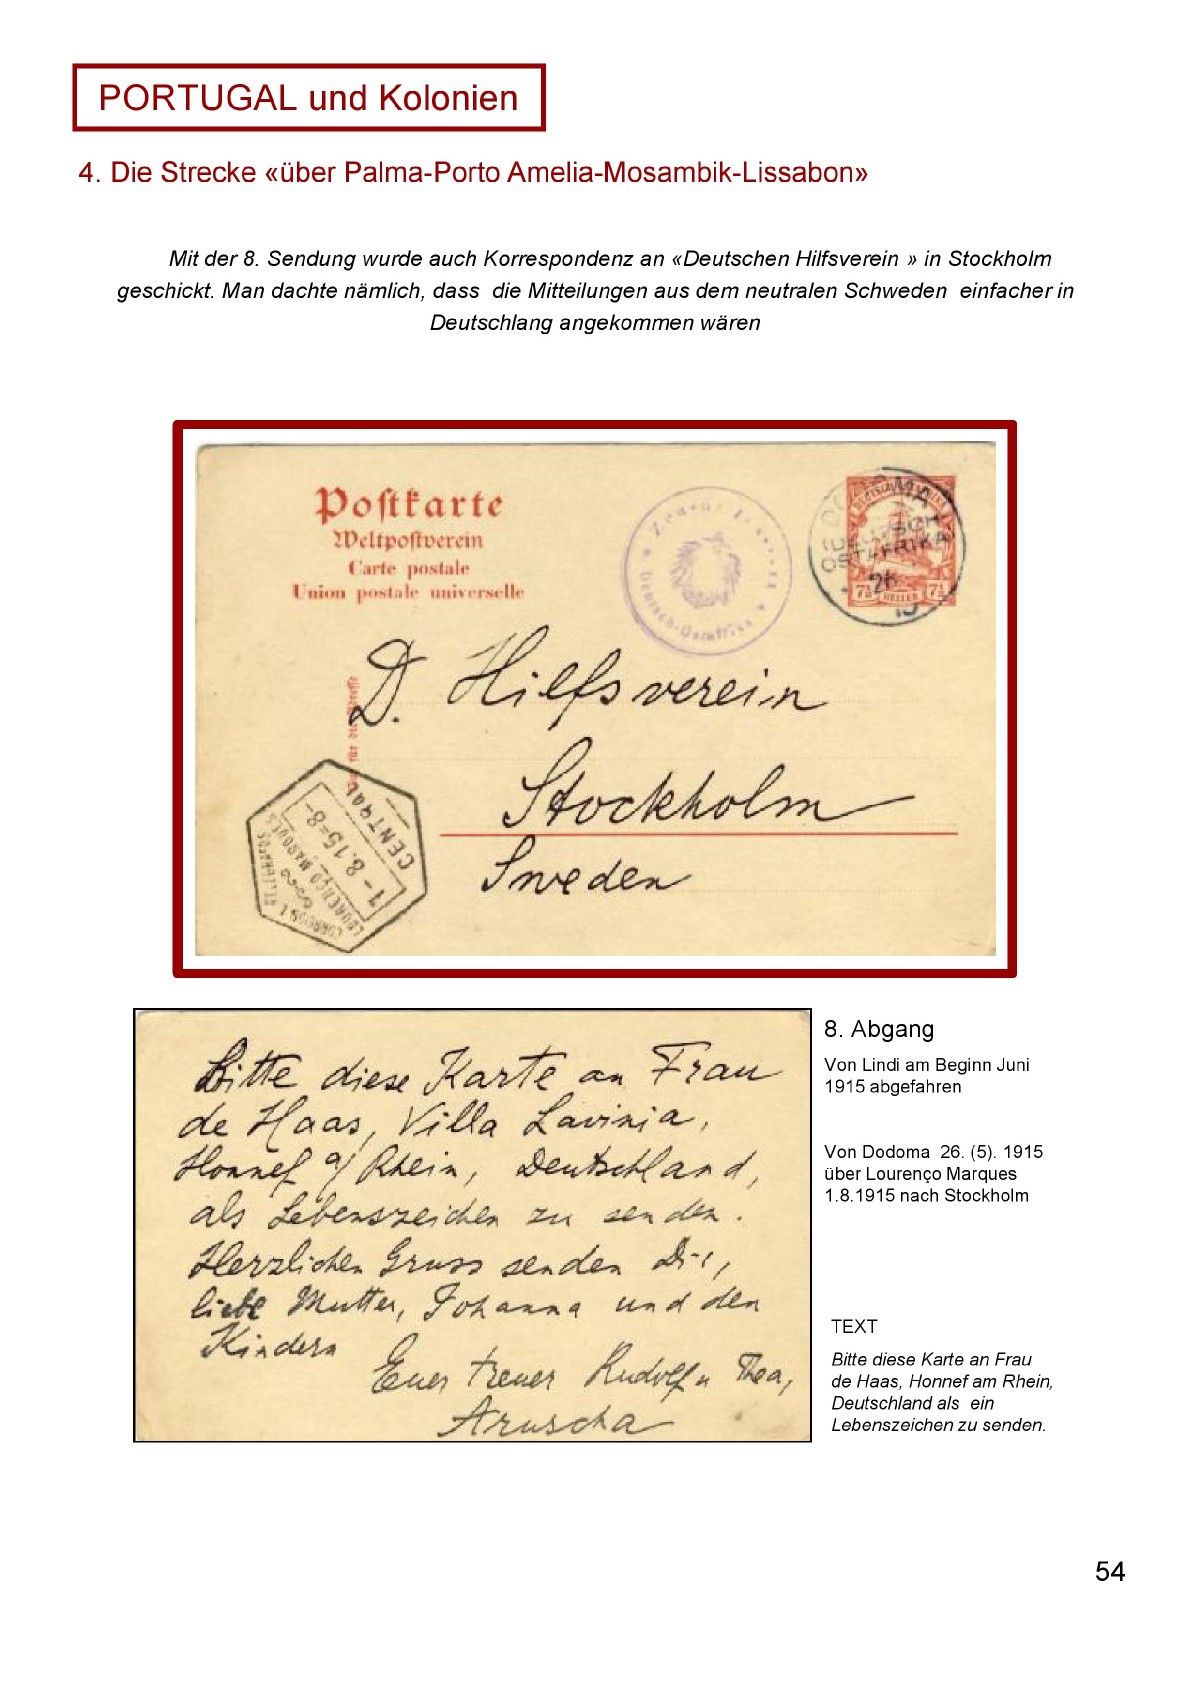 PORTUGAL und Kolonien
4. Die Strecke «über Palma-Porto Amelia-Mosambik-Lissabon»
Mit der 8. Sendung wurde auch Korrespondenz an «Deutschen Hilfsverein » in Stockholm
geschickt. Man dachte nämlich, dass die Mitteilungen aus dem neutralen Schweden einfacher in
Deutschlang angekommen wären
Postkarte
Weltpostverein
Carte postale
Union postale universelle
Deutsch-Ostafrika
DODOMA
DEUTSCH
OSTAFRIKA
26
15
7½ HELLER 7½
D. Hilfsverein
Stockholm
Sweden
CENTRAL
1-8.15=8-
LOURENÇO MARQUES
CORREIOS
Bitte diese Karte an Frau
de Haas, Villa Lavinia,
Honnef a/ Rhein, Deutschland,
als Lebenszeichen zu senden.
Herzlichen Gruss senden Dir,
liebe Mutter, Johanna und den
Kindern
Euer treuer Rudolf u Thea,
Aruscha
8. Abgang
Von Lindi am Beginn Juni
1915 abgefahren
Von Dodoma 26. (5). 1915
über Lourenço Marques
1.8.1915 nach Stockholm
TEXT
Bitte diese Karte an Frau
de Haas, Honnef am Rhein,
Deutschland als ein
Lebenszeichen zu senden.
54